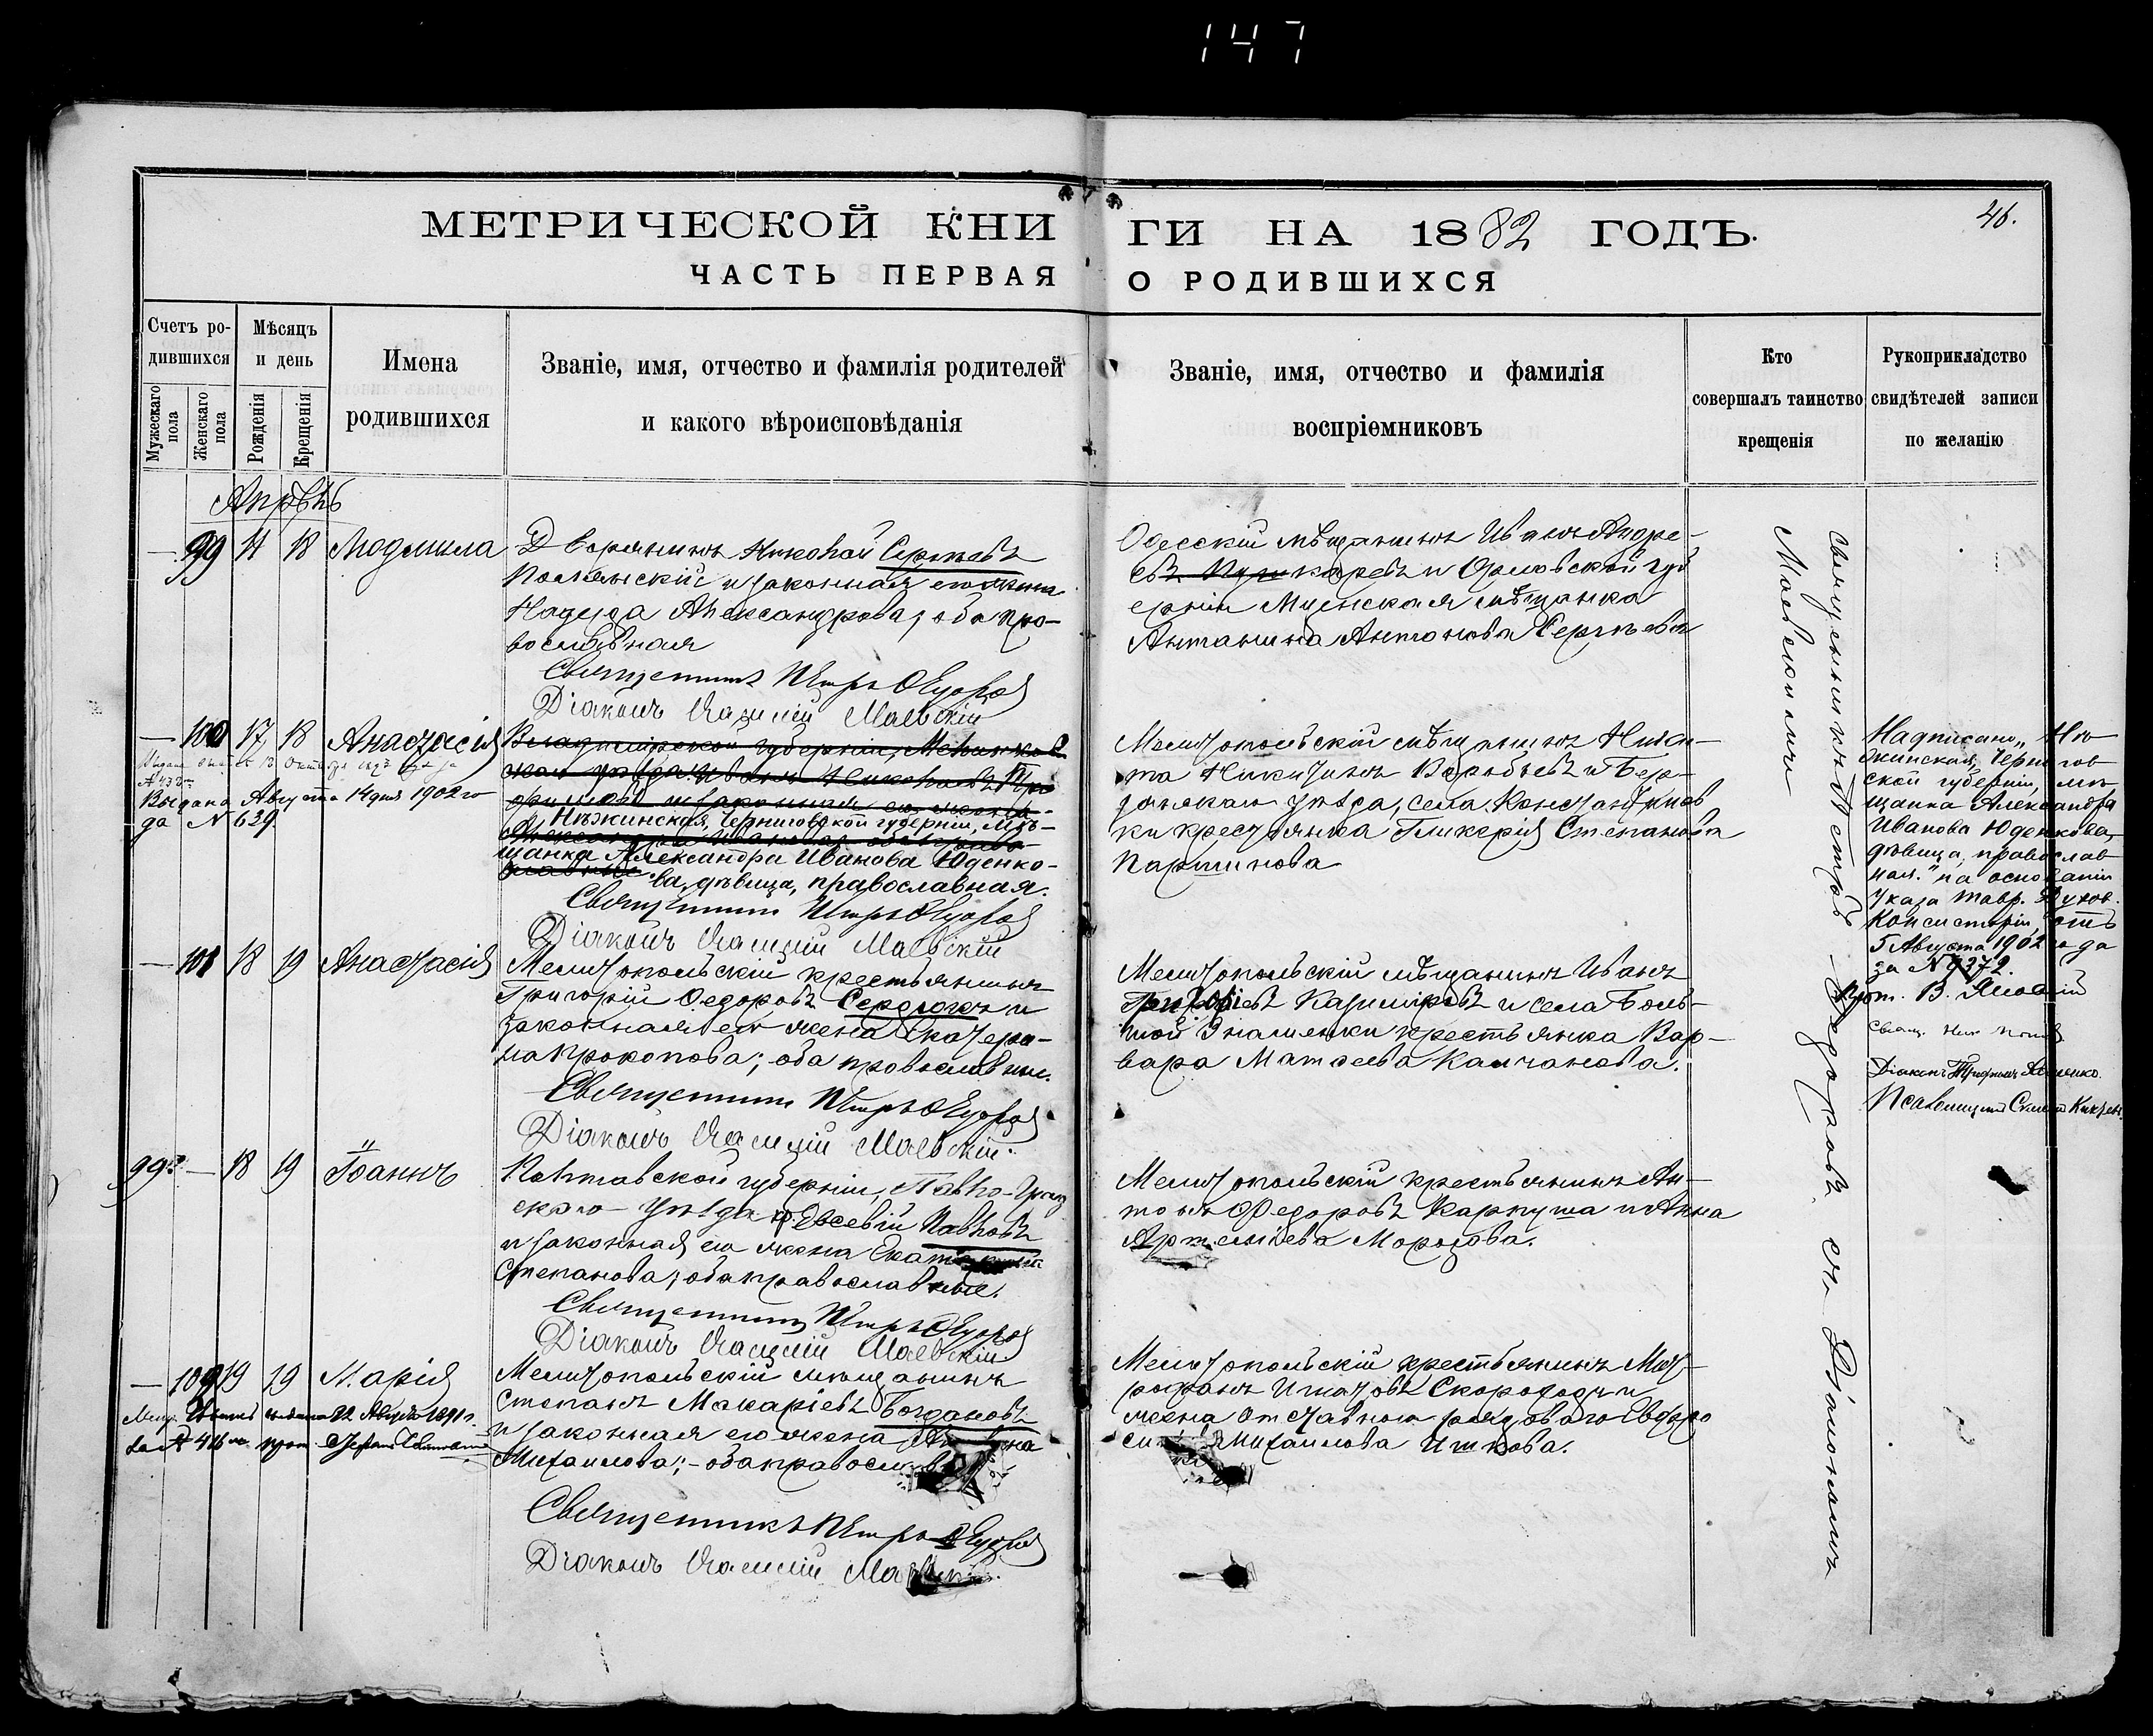 147
МЕТРИЧЕСКОЙ КНИ ГИ НА 1882 ГОДЪ.
46.
ЧАСТЬ ПЕРВАЯ О РОДИВШИХСЯ
Счетъ ро-
дившихся
Мужескаго
пола
Женскаго
пола
Мѣсяцъ
и день
Рожденія
Крещенія
Имена
родившихся
Званіе, имя, отчество и фамилія родителей
и какого вѣроисповѣданія
Званіе, имя, отчество и фамилія
воспріемниковъ
Кто
совершалъ таинство
крещенія
Рукоприкладство
свидѣтелей записи
по желанію
Апрѣль
— 99 11 18 Людмила
Дворянинъ Николай Сергѣевъ
и законная его жена
Надежда Александрова; оба пра-
вославная
Священникъ Петръ Ѳедоровъ
Діаконъ Василій Маевскій
Одесскій мѣщанинъ Иванъ Андре-
евъ и Орловской губ
ерніи Мценская мѣщанка
Антонина Антонова Сергѣева
Священникъ Петръ Ѳедоровъ съ Діакономъ
Маевскимъ
— 100 17 18 Анастасія
Выдана Августа 14 дня 1902 го
да № 639.
Владимірской губерніи, Меленков
скаго уѣзда Иванъ Николаевъ
и законная его жена
Нѣжинская, Черниговской губерніи, мѣ-
щанка Александра Иванова Юденко-
ва, дѣвица, православная.
Священникъ Петръ Ѳедоровъ
Діаконъ Василій Маевскій
Мелитопольскій мѣщанинъ Ники-
та Никитинъ Воробьевъ и Бер-
дянскаго уѣзда, села Константинов
ки крестьянка Гликерія Степанова
Паршикова
Надписано „Нѣ-
жинская, Чернигов
ской губерніи, мѣ-
щанка Александра
Иванова Юденкова,
дѣвица, православ
ная." на основаніи
указа Тавр. Духов.
Консисторіи, отъ
5 Августа 1902 года
за № 9372.
Прот. В.
Діаконъ
Псаломщикъ
— 101 18 19 Анастасія
Мелитопольскій крестьянинъ
Григорій Ѳедоровъ Сердюкъ и
законная его жена Екатери-
на Прокопова; оба православные.
Священникъ Петръ Ѳедоровъ
Діаконъ Василій Маевскій.
Мелитопольскій мѣщанинъ Иванъ
Григорьевъ Казиміровъ и села Боль-
шой Знаменки крестьянка Вар-
вара Матѳеева Калчанова.
99 — 18 19 Іоаннъ
Полтавской губерніи, Павло-Град
скаго уѣзда кр. Евсевій Павловъ
и законная его жена Екатерина
Степанова; оба православные.
Священникъ Петръ Ѳедоровъ
Діаконъ Василій Маевскій.
Мелитопольскій крестьянинъ Ан-
тонъ Ѳедоровъ Карпуша и Анна
Артемьева Морозова.
— 102 19 19 Марія
выдана 22 Августа 1891 г.
за № 416
Мелитопольскій мѣщанинъ
Степанъ Макаріевъ Богдановъ
и законная его жена
Михаилова; – оба православ
Священникъ Петръ Ѳедоровъ
Діаконъ Василій Маевскій.
Мелитопольскій крестьянинъ Мит-
рофанъ Игнатовъ Скороходъ и
жена отставного рядового Евфро
синія Михаилова Ишкова.